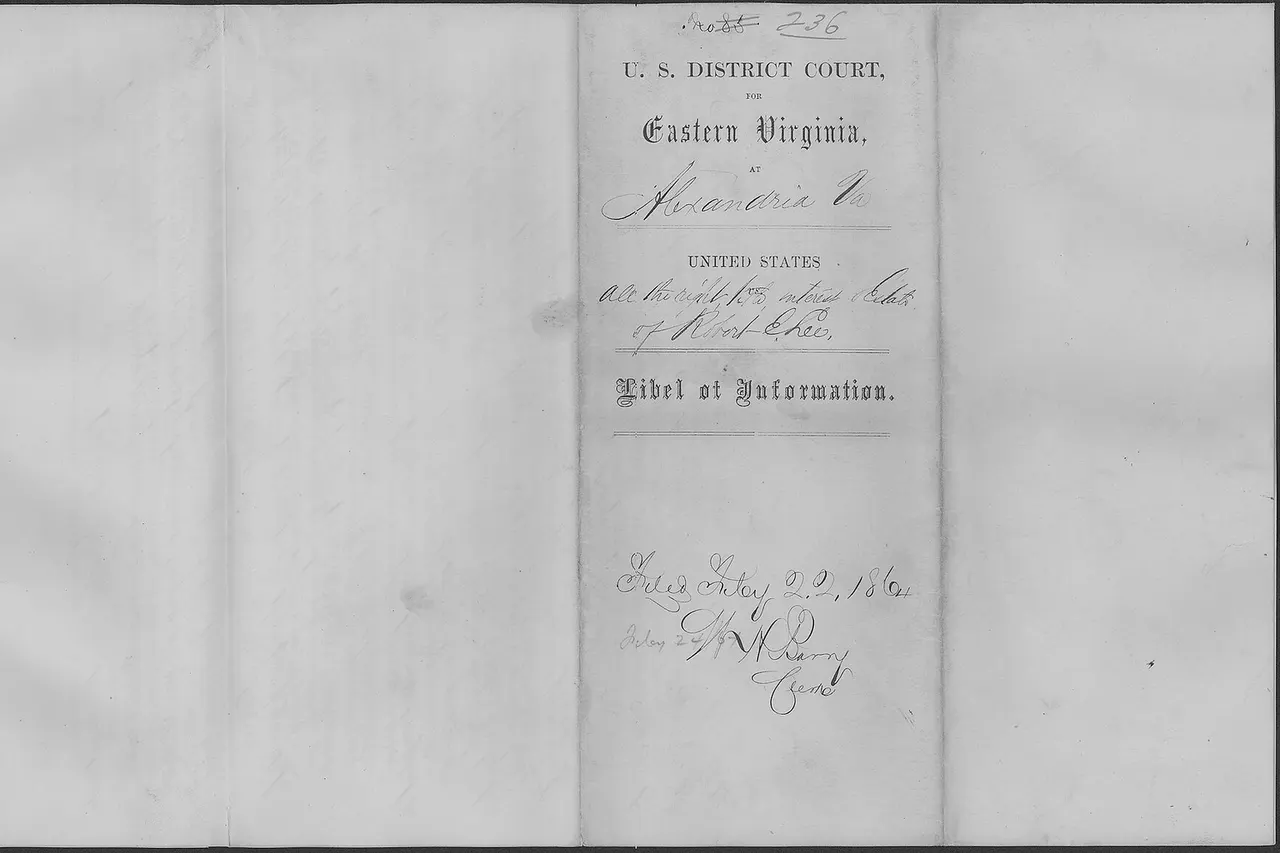 No 85 236
U. S. DISTRICT COURT,
FOR
Eastern Virginia,
AT
Alexandria Va
UNITED STATES
all the right, title, interest & Estate
of Robert E. Lee.
Libel of Information.
Filed Feby 22, 1864
Feby 24
W N Barry
Clerk